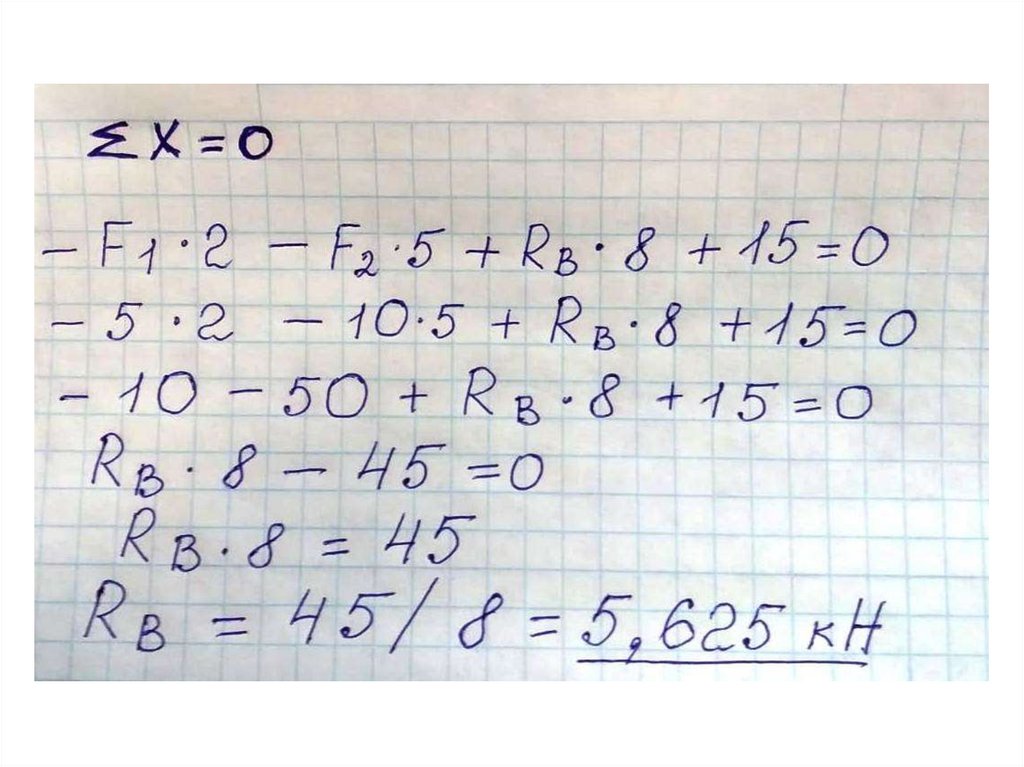 ΣX=0
-F₁·2 -F₂·5+R_B·8+15=0
-5·2 -10·5+R_B·8+15=0
-10-50+R_B·8+15=0
R_B·8-45=0
R_B·8=45
R_B=45/8=5,625 кН